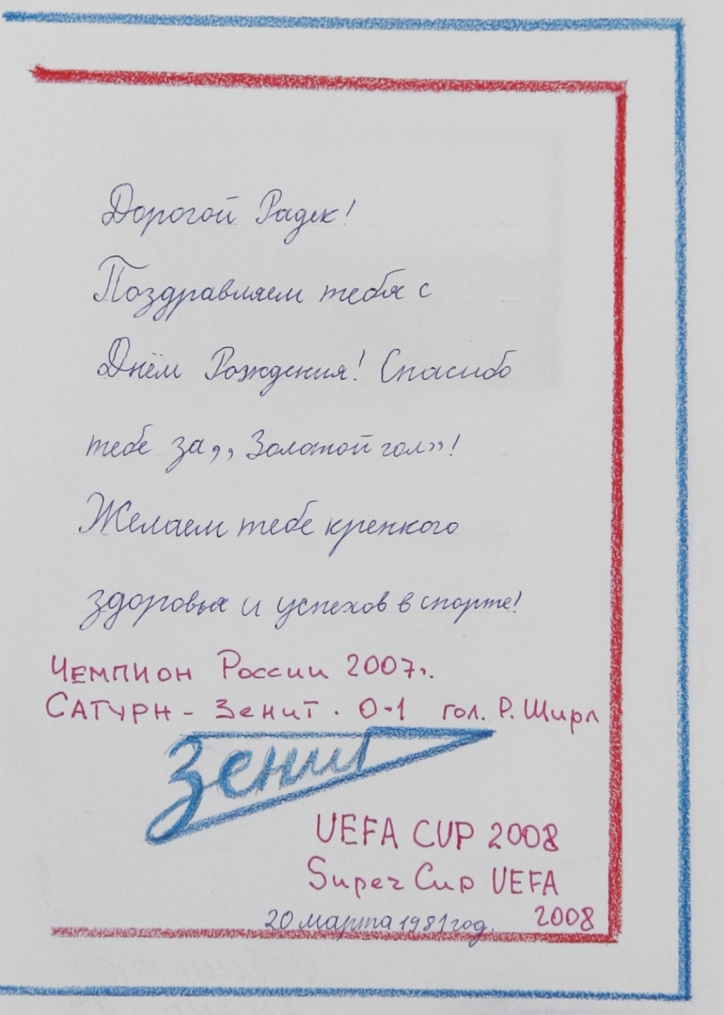 Дорогой Радек!
Поздравляем тебя с
Днём Рождения! Спасибо
тебе за ,, Золотой гол»!
Желаем тебе крепкого
здоровья и успехов в спорте!
Чемпион России 2007г.
САТУРН - Зенит. 0-1 гол. Р. Ширл
Зенит
UEFA CUP 2008
Super Cup UEFA
2008
20 марта 1981 год.